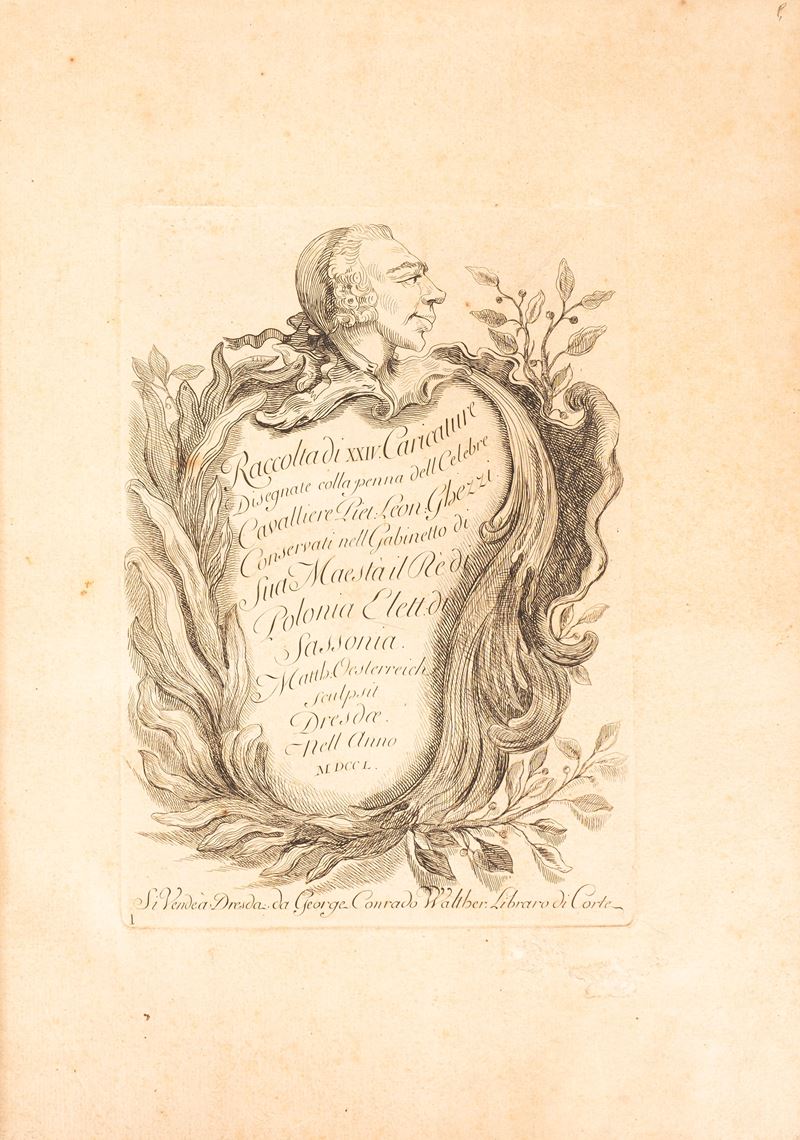 Raccolta di XXIV. Caricature
Disegnate colla penna dell Celebre
Cavalliere Piet. Leon. Ghezzi
Conservati nell Gabinetto di
Sua Maestà il Rè di
Polonia Elett. di
Sassonia.
Matth. Oesterreich
sculpsit
Dresdæ.
Nell Anno
MDCCL.
Si Vende à Dresda. da George Conrado Walther. Libraro di Corte
1